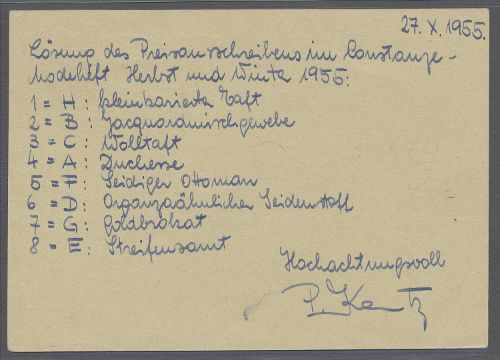 27. X. 1955.
Lösung des Preisausschreibens im Constanze-
Modeheft Herbst und Winter 1955:
1 = H: kleinkarierter Taft
2 = B: Jacquardmischgewebe
3 = C: Wolltaft
4 = A: Duchesse
5 = F: Seidiger Ottoman
6 = D: Organzaähnlicher Seidenstoff
7 = G: Goldbrokat
8 = E: Streifensamt
Hochachtungsvoll